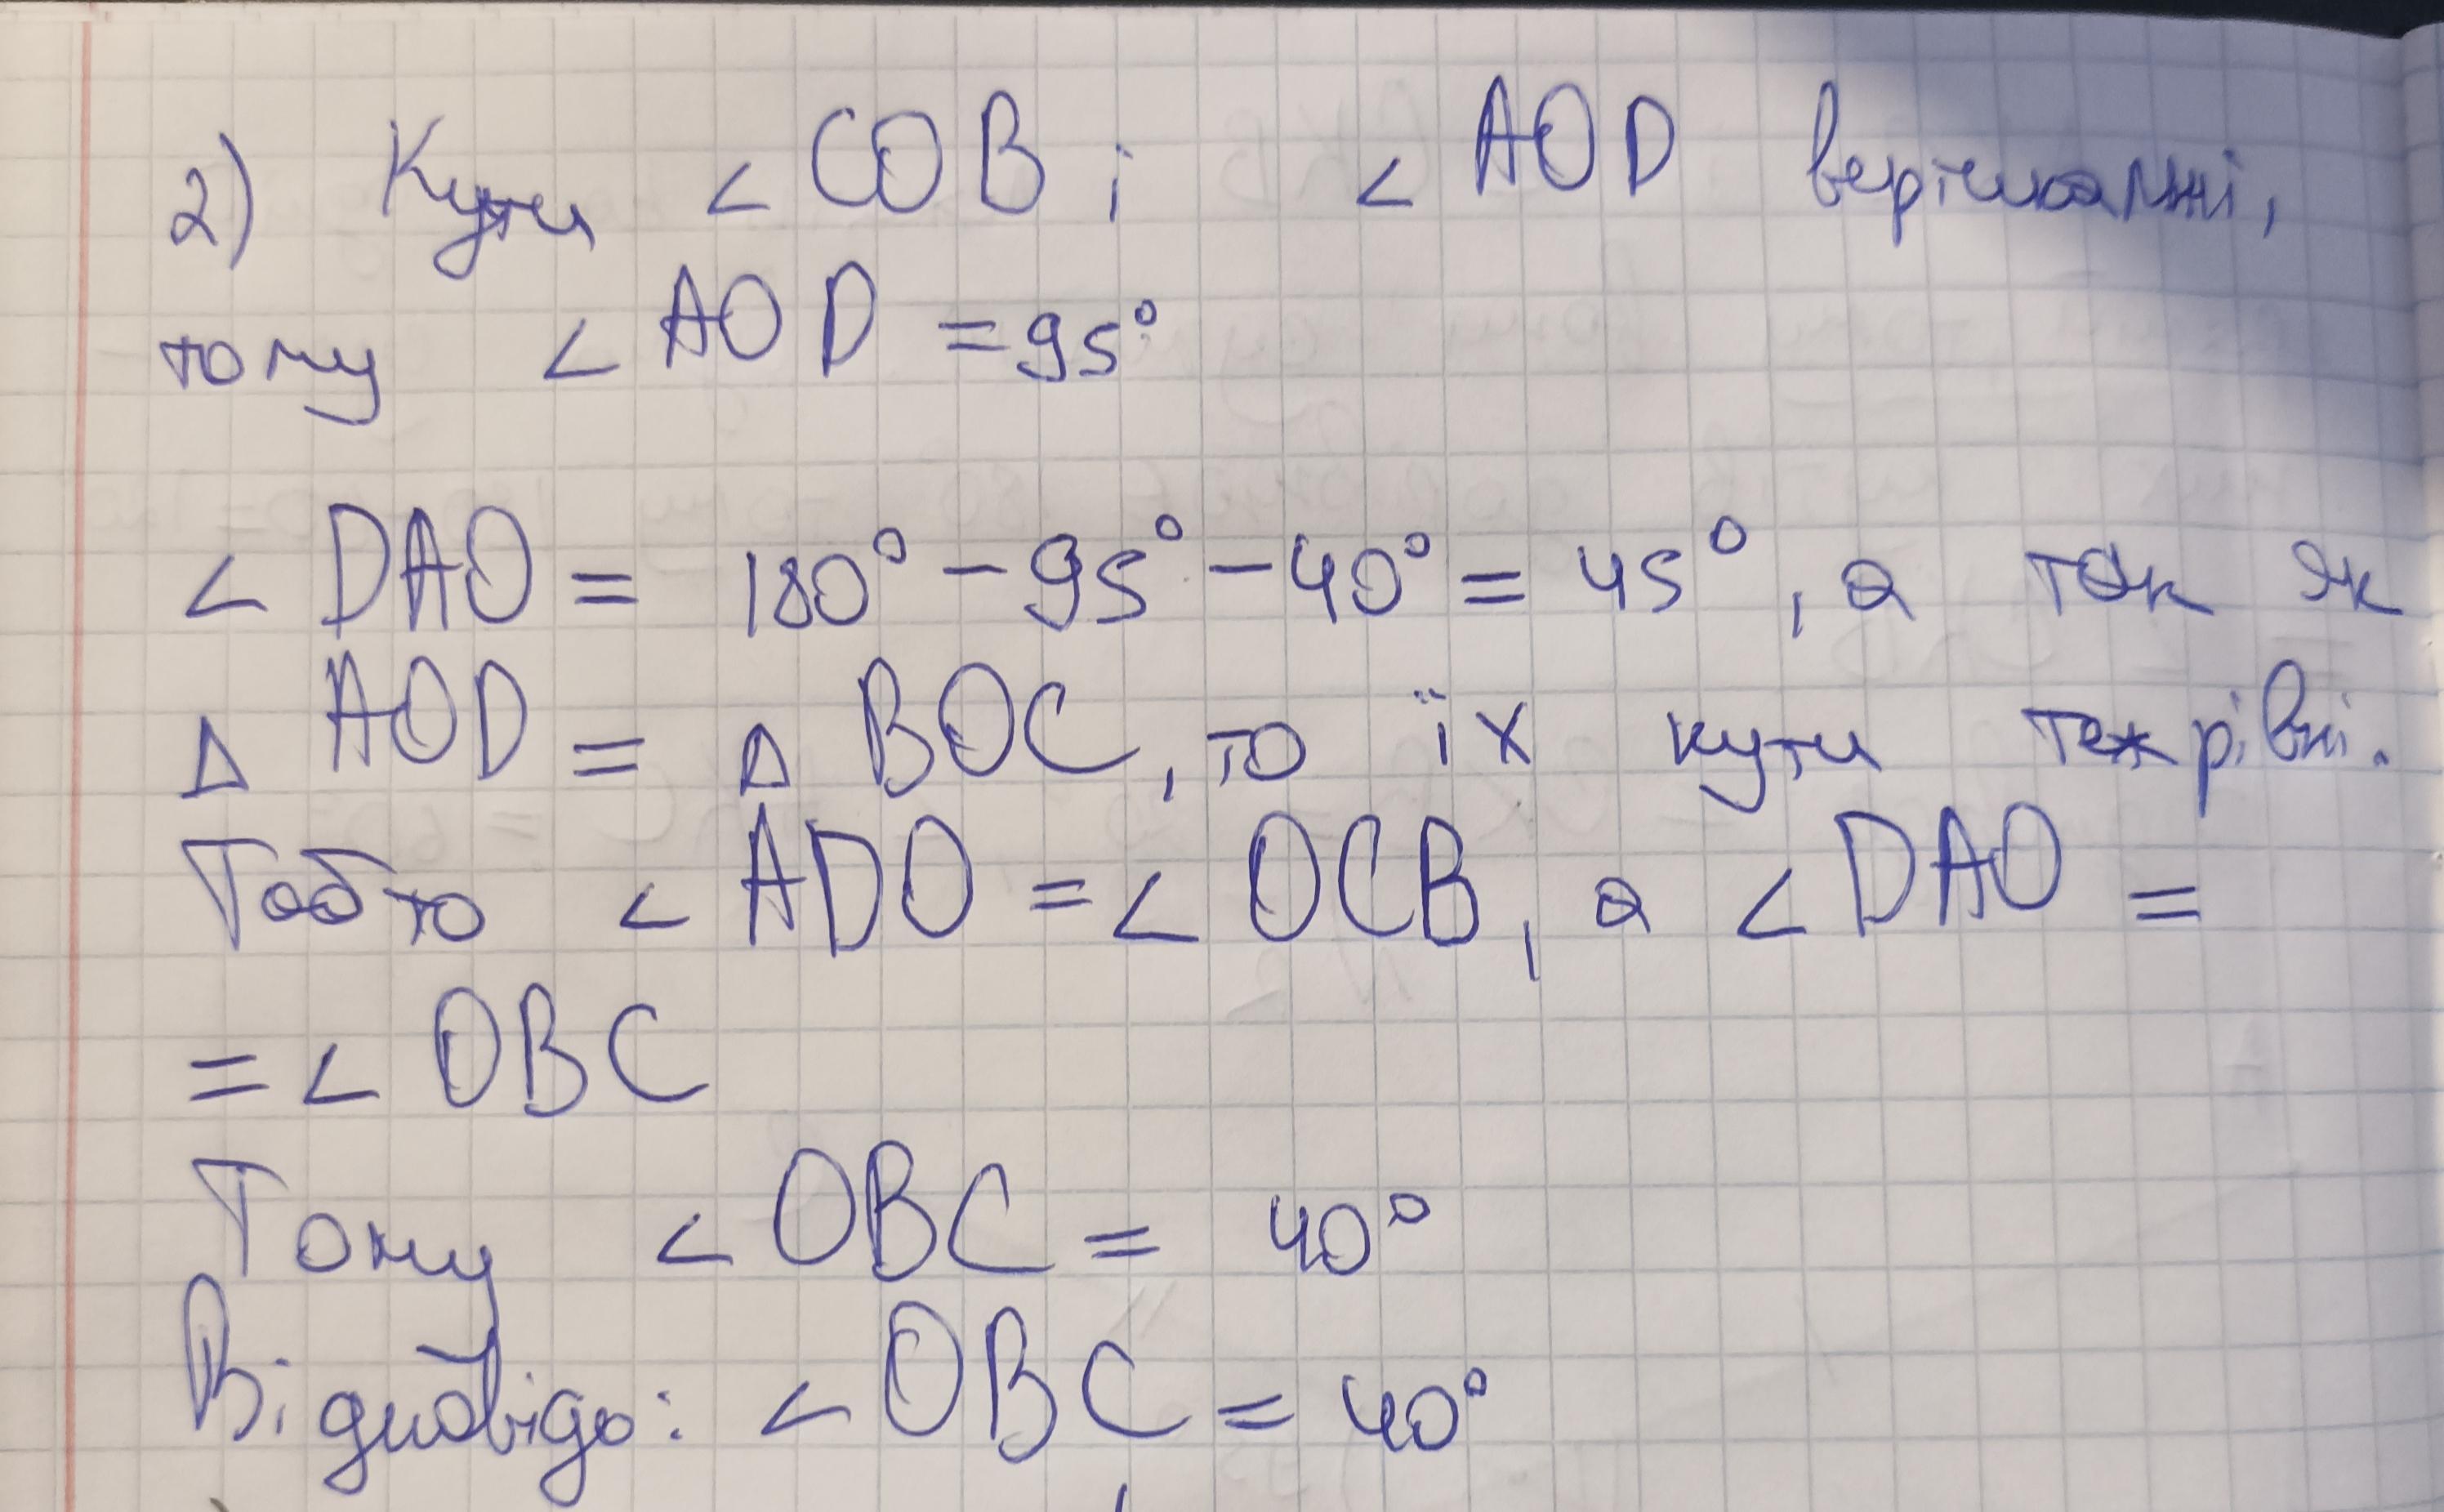 2) Кути < COB і < AOD вертикальні,
тому < AOD = 95°
< DAO = 180° - 95° - 40° = 45°, а так як
Δ AOD = Δ BOC, то їх кути теж рівні.
Тобто < ADO = < OCB, а < DAO =
= < OBC
Тому < OBC = 40°
Відповідь: < OBC = 40°